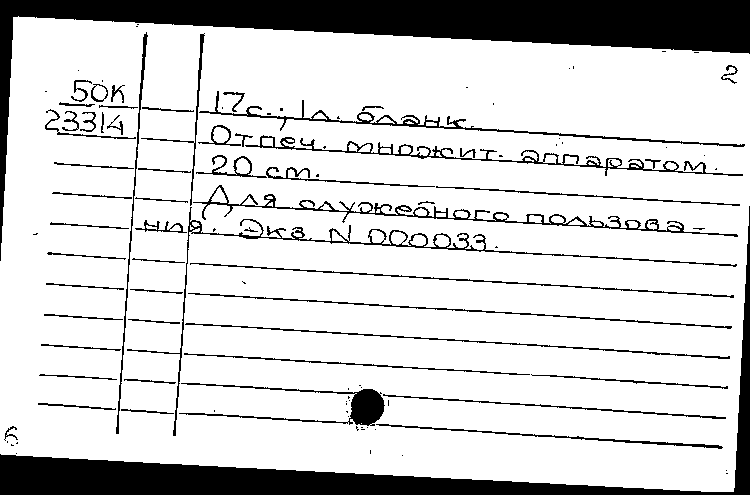 2
50К
23314
17с.; 1л. бланк.
Отпеч. множит. аппаратом.
20 см.
Для служебного пользова-
ния. Экз. N 000033.
6